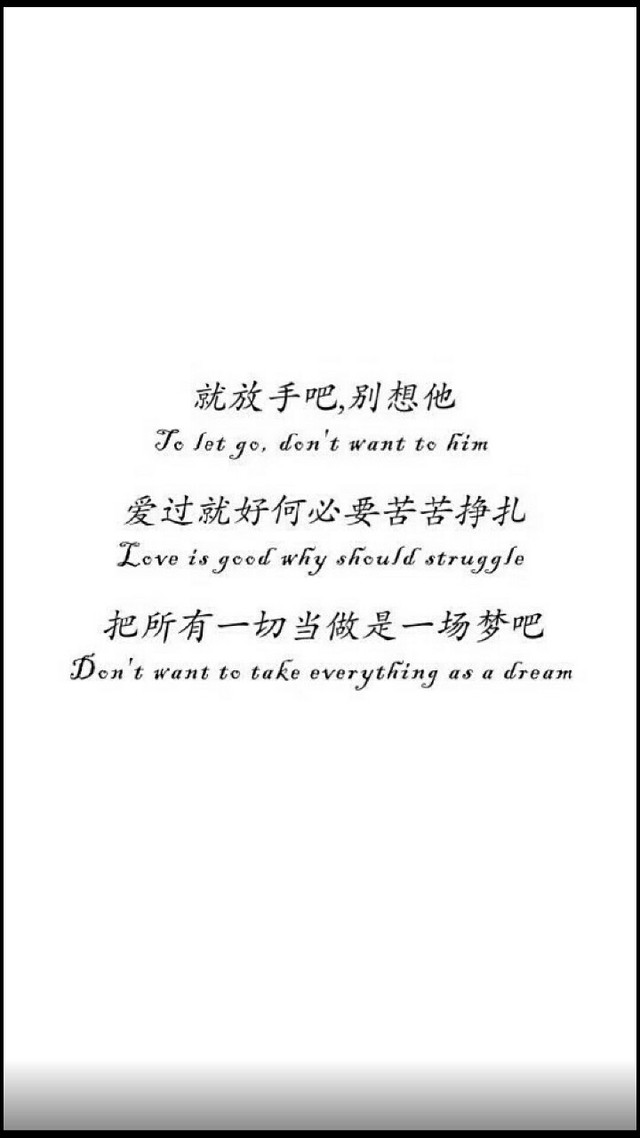 就放手吧,别想他
To let go, don't want to him
爱过就好何必要苦苦挣扎
Love is good why should struggle
把所有一切当做是一场梦吧
Don't want to take everything as a dream